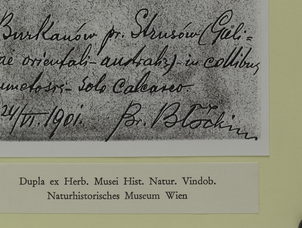 Burkanów pr. Strusów (Gali-
ae orientali-australis)- in collibus
umetosis - solo calcareo
24/VI. 1901. Br. Błocki
Dupla ex Herb. Musei Hist. Natur. Vindob.
Naturhistorisches Museum Wien